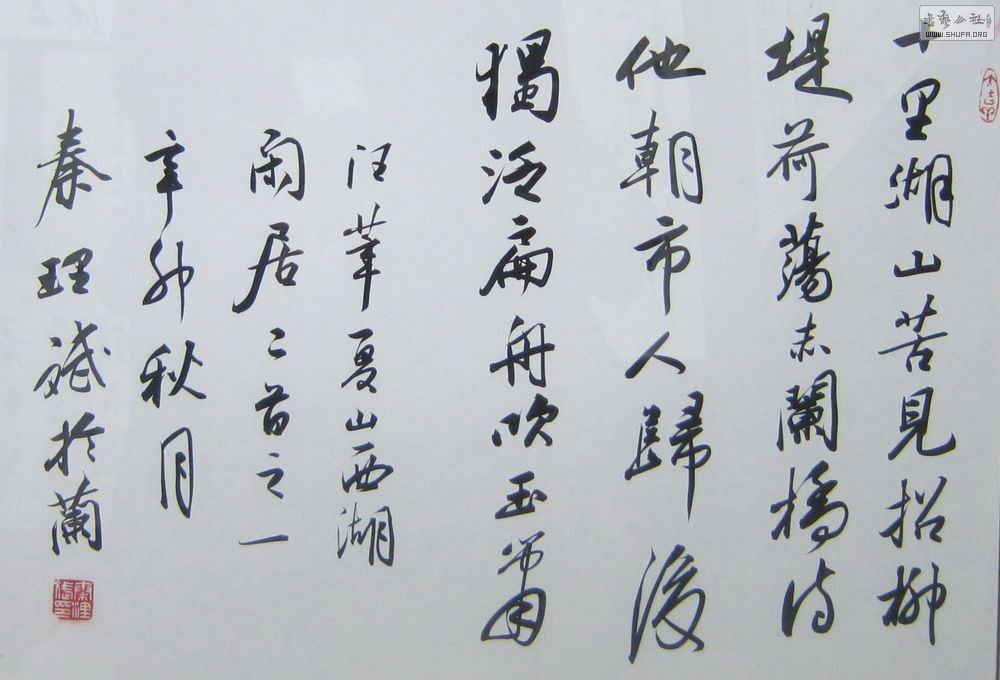 书艺公社
WWW.SHUFA.ORG
十里湖山苦見招柳
堤荷蕩赤闌橋待
他朝市人歸後
獨泛扁舟吹玉簫
汪莘夏山西湖
閑居二首之一
辛卯秋月
秦理斌於蘭